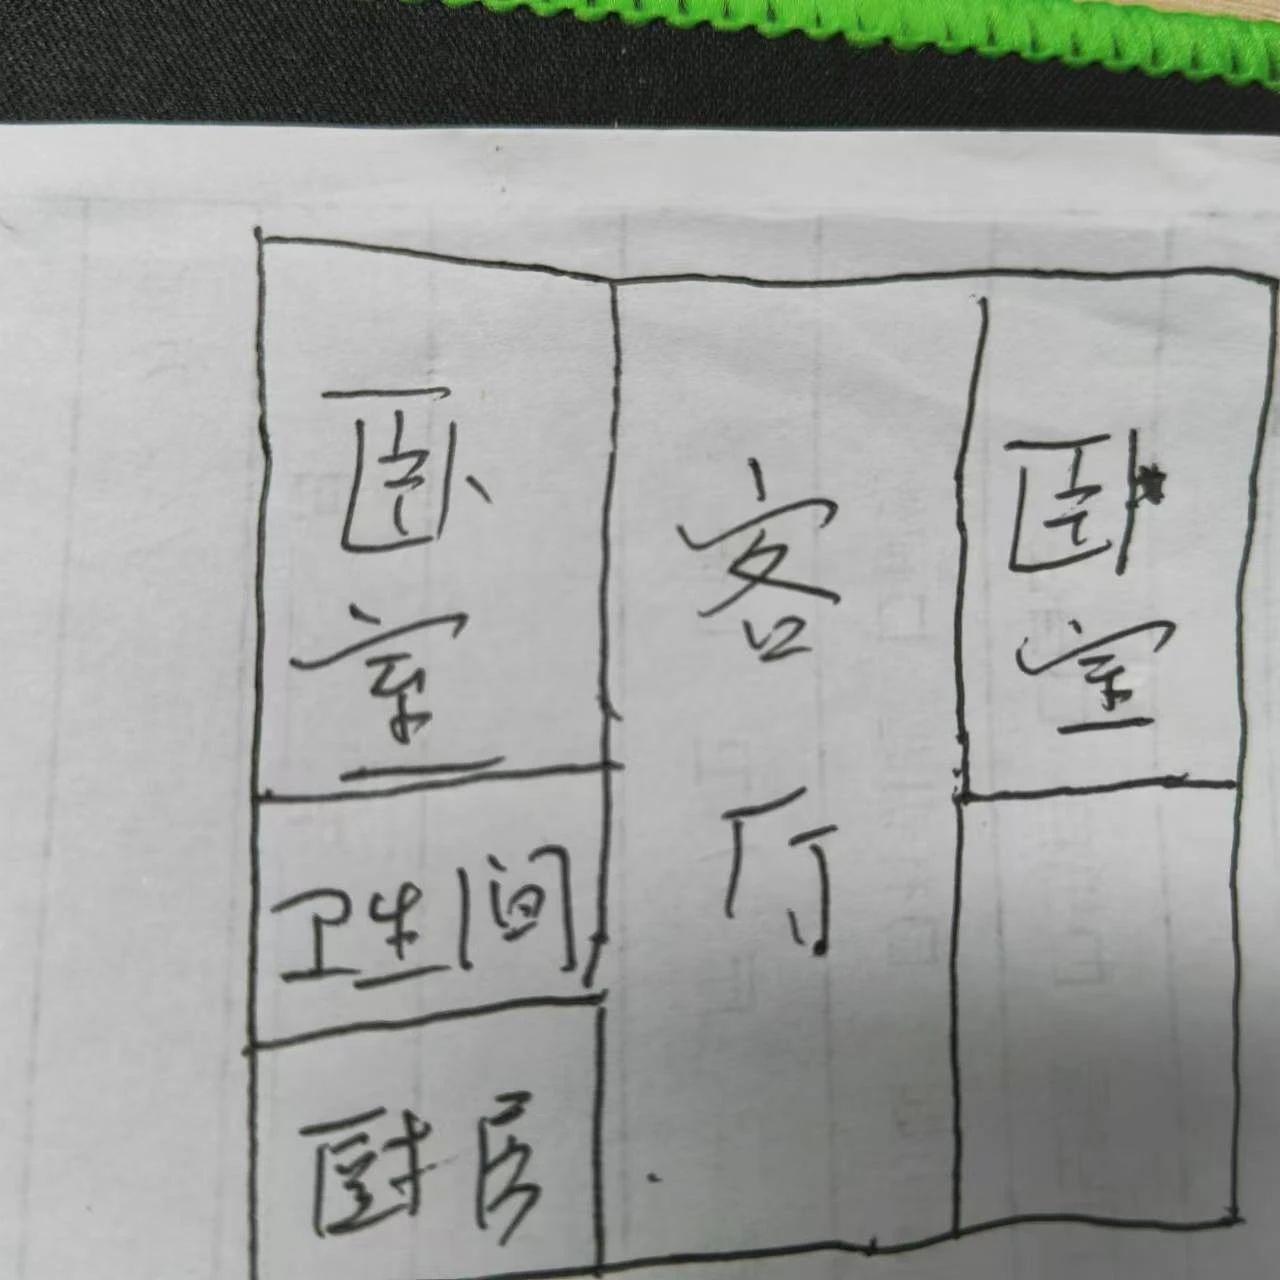 卧室
客厅
卧室
卫生间
厨房